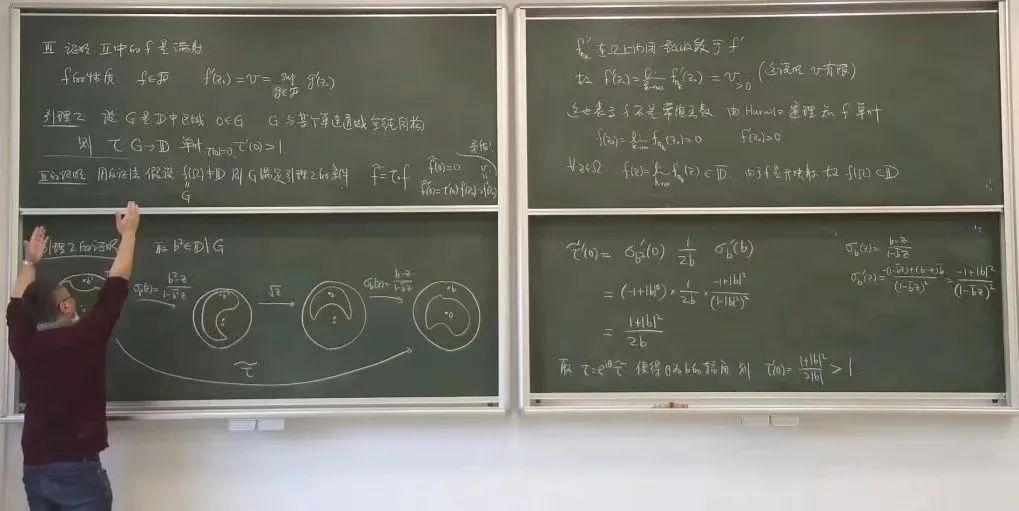 III 证明 II中的f是满射
f的性质 f∈𝓕 f'(z₀) = v = sup_{g∈𝓕} g'(z₀)
引理2 设 G 是 𝔻中区域 0∈G G 与某个单连通域全纯同构
则 τ: G→𝔻 单叶 τ(0)=0, τ'(0)>1.
III的证明 用反证法 假设 f(Ω)≠𝔻 则 G 满足引理2的条件 f̃=τ∘f f̃(z₀)=0
G
矛盾!
引理2的证明 取 b²∈𝔻\G
σ_{b²}(z)=(b²-z)/(1-b̄²z) √z σ_b(z)=(b-z)/(1-b̄z)
τ̃
f'_{n_k} 在Ω上内闭一致收敛于 f'
故 f'(z₀)=lim_{k→∞} f'_{n_k}(z₀) = v >0 (这说明 v有限)
这也表示 f 不是常值函数 由 Hurwitz 定理 知 f 单叶
f(z₀)=lim_{k→∞} f_{n_k}(z₀)=0 f'(z₀)>0
∀z∈Ω f(z)=lim_{k→∞} f_{n_k}(z)∈𝔻̄. 由于f是开映射 故 f(Ω)⊂𝔻.
τ̃'(0) = σ'_{b²}(0) 1/(2b) σ'_b(b)
= (-1+|b|⁴) * 1/(2b) * (-1+|b|²)/(1-|b|²)²
= (1+|b|²)/(2b)
σ_b(z)=(b-z)/(1-b̄z)
σ_b'(z)=(-(1-b̄z)+(b-z)b̄)/(1-b̄z)²=(-1+|b|²)/(1-b̄z)²
取 τ=e^{iθ}τ̃ 使得 θ为b的辐角 则 τ'(0)=(1+|b|²)/(2|b|) > 1.